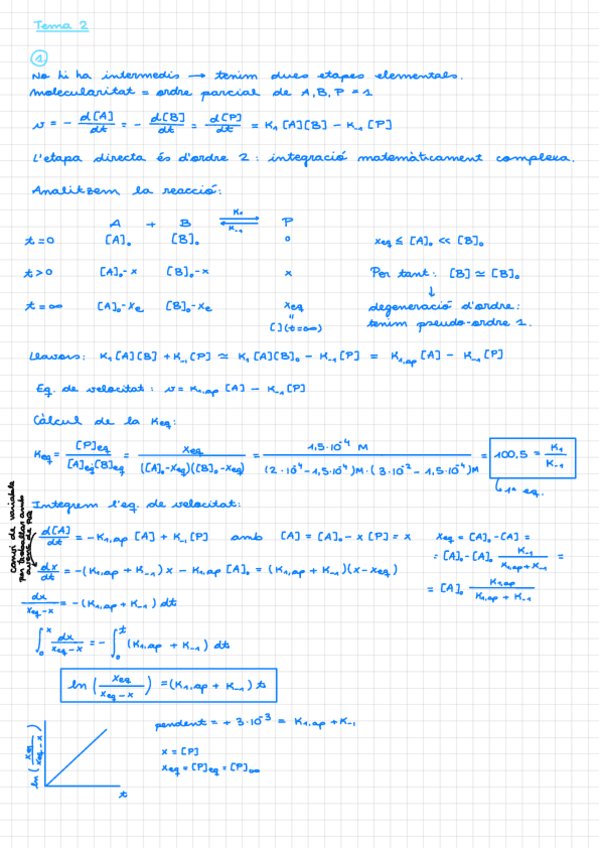 Tema 2
1
No hi ha intermedis → tenim dues etapes elementals.
Molecularitat = ordre parcial de A, B, P = 1
v = - d[A]/dt = - d[B]/dt = d[P]/dt = K₁ [A][B] - K₋₁ [P]
L'etapa directa és d'ordre 2: integració matemàticament complexa.
Analitzem la reacció:
A + B ⇌ P K₁ K₋₁
t=0 [A]₀ [B]₀ 0 xeq ≤ [A]₀ << [B]₀
t>0 [A]₀-x [B]₀-x x Per tant: [B] ≃ [B]₀
↓
t=∞ [A]₀-xe [B]₀-xe xeq degeneració d'ordre:
" [ ](t=∞) tenim pseudo-ordre 1.
Llavors: K₁[A][B] + K₋₁[P] ≃ K₁[A][B]₀ - K₋₁[P] = K₁,ap [A] - K₋₁[P]
Eq. de velocitat: v = K₁,ap [A] - K₋₁[P]
Càlcul de la Keq:
Keq = [P]eq/[A]eq[B]eq = xeq/([A]₀-xeq)([B]₀-xeq) = 1,5·10⁻⁴ M/(2·10⁻⁴-1,5·10⁻⁴)M·(3·10⁻²-1,5·10⁻⁴)M = 100.5 = K₁/K₋₁
↳ 1ª eq.
Integrem l'eq. de velocitat:
canvi de variable
per treballar amb
d[A]/dt = -K₁,ap [A] + K₋₁[P] amb [A] = [A]₀-x [P] = x xeq = [A]₀-[A] =
dx/dt = -(K₁,ap + K₋₁)x - K₁,ap [A]₀ = (K₁,ap + K₋₁)(x-xeq) = [A]₀-[A]₀ K₋₁/K₁,ap+K₋₁ =
= [A]₀ K₁,ap/K₁,ap + K₋₁
dx/xeq-x = -(K₁,ap + K₋₁) dt
∫₀ˣ dx/xeq-x = - ∫₀ᵗ (K₁,ap + K₋₁) dt
ln (xeq/xeq-x) = (K₁,ap + K₋₁) t
ln (xeq/xeq-x) pendent = + 3·10⁻³ = K₁,ap + K₋₁
x = [P]
xeq = [P]eq = [P]∞
t